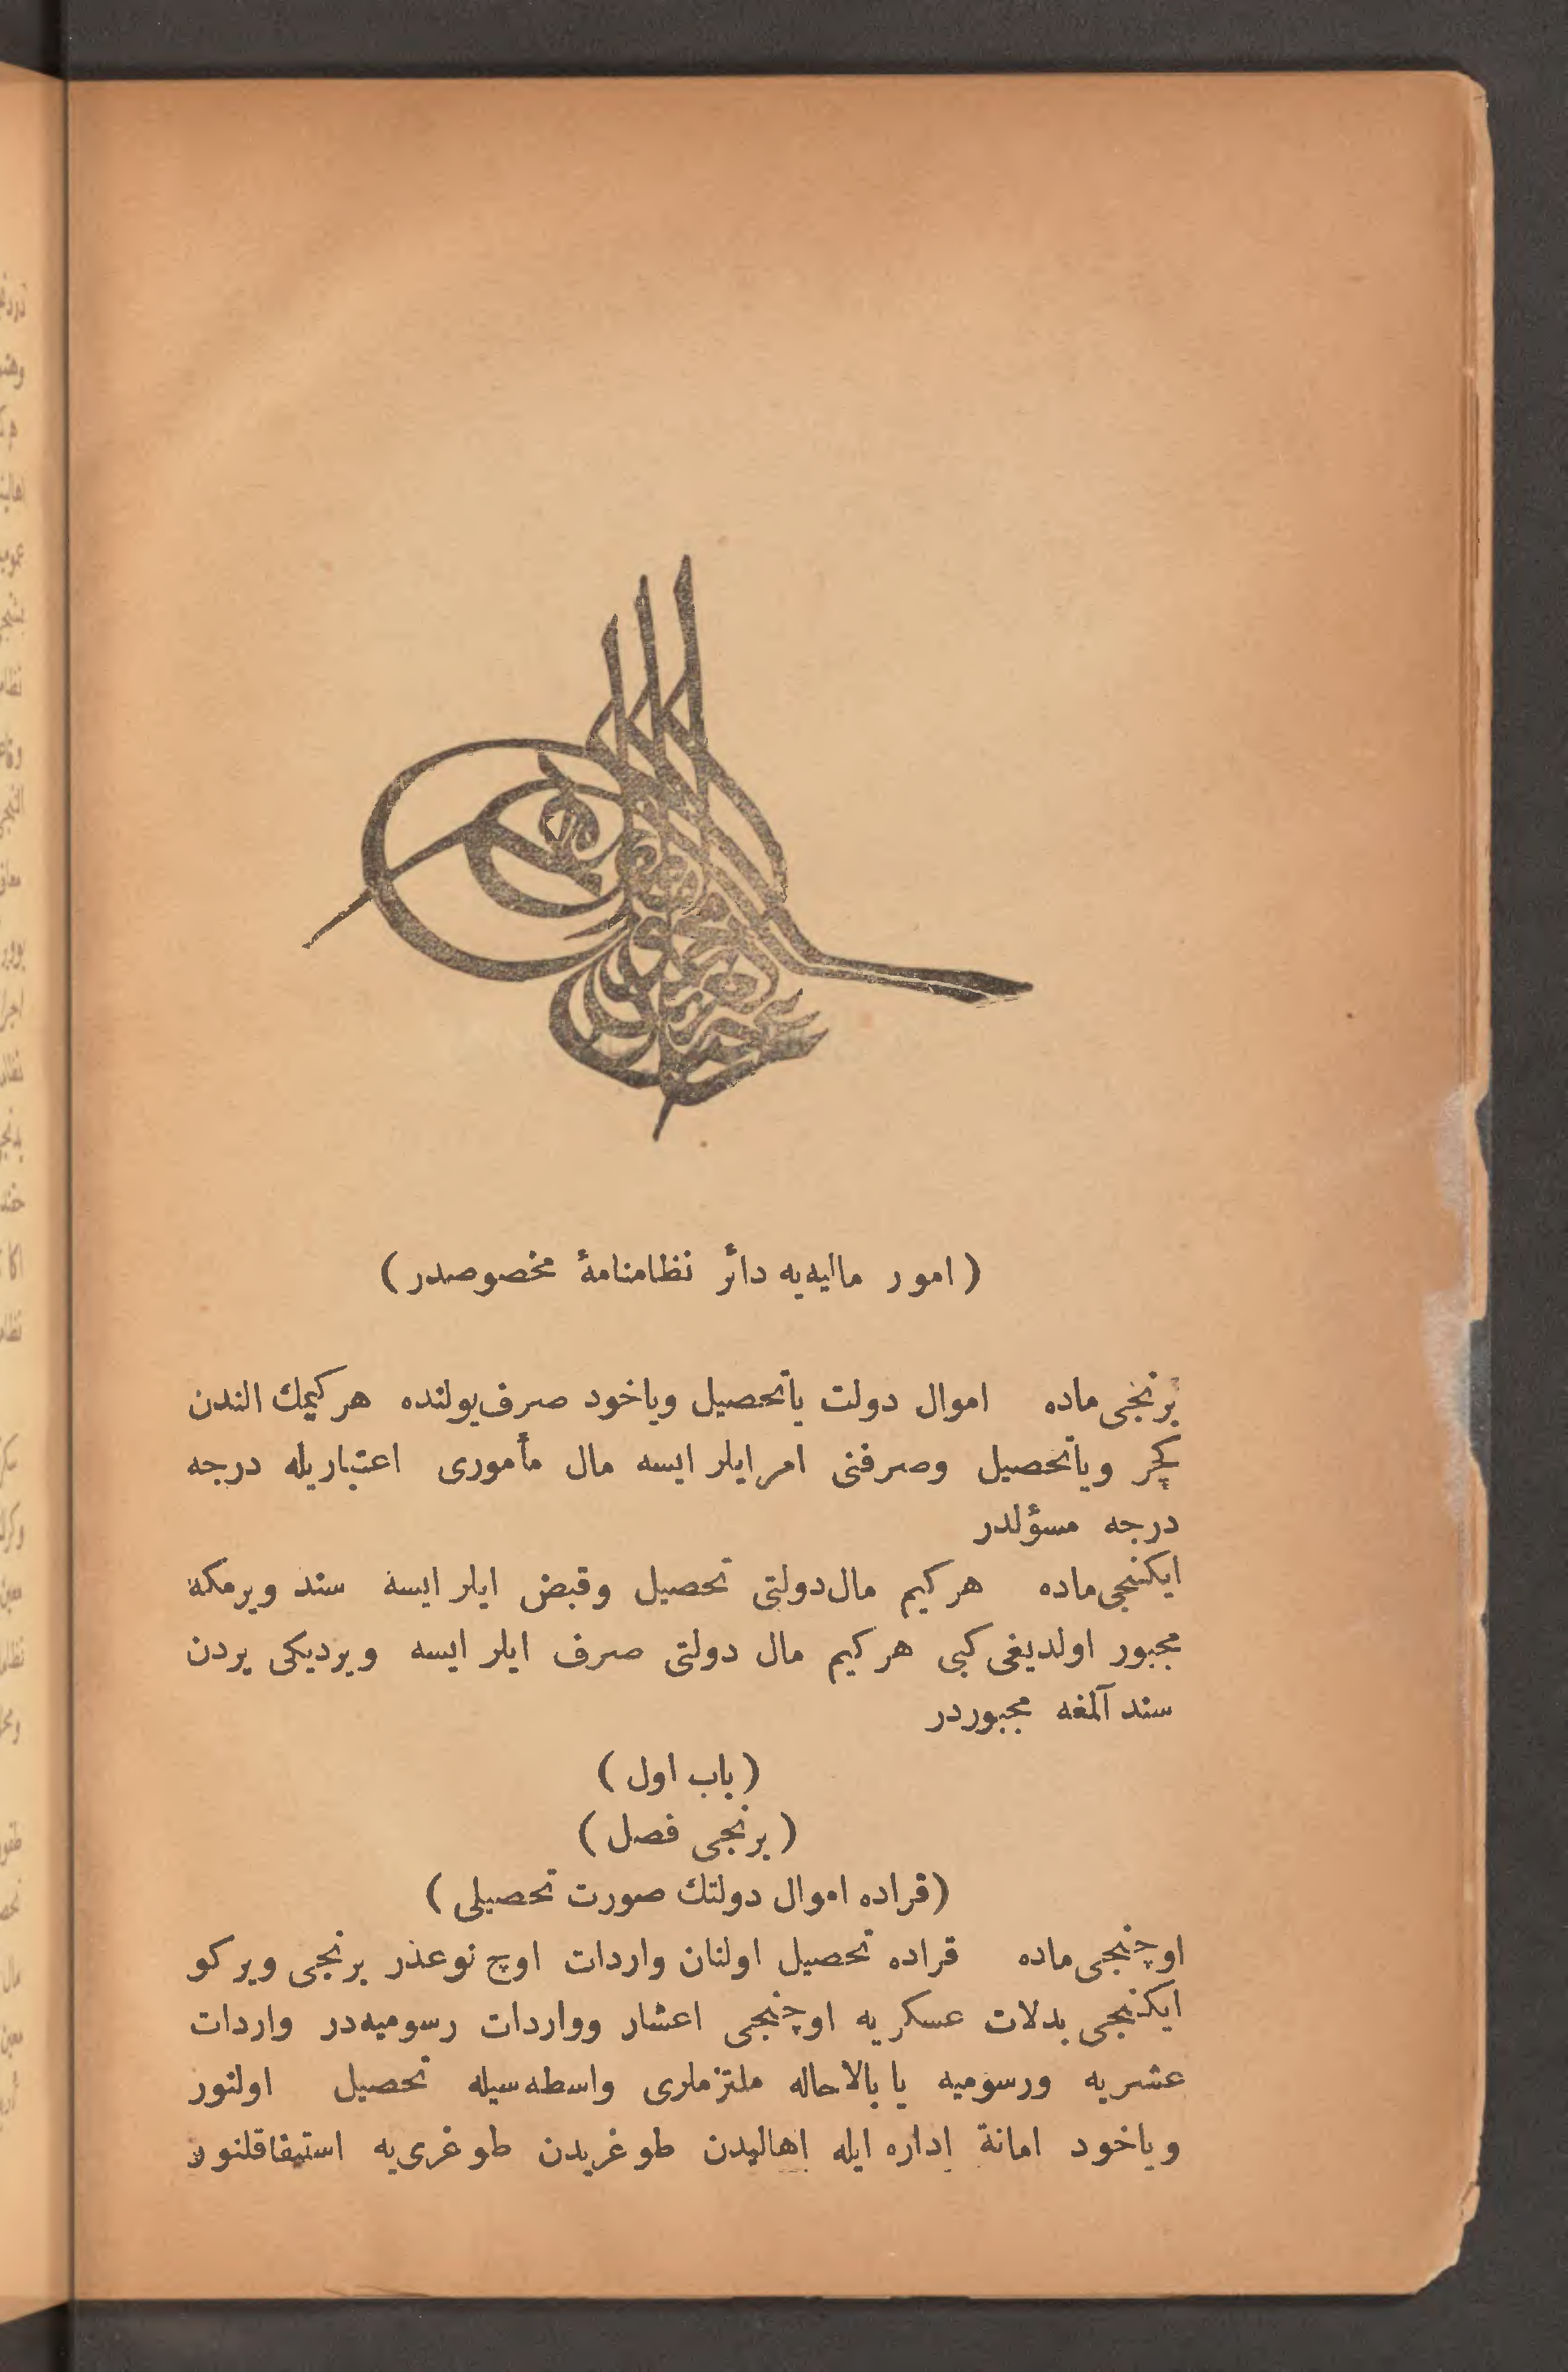 (امور ماليه‌يه دائر نظامنامۀ مخصوصدر)
برنجی ماده اموال دولت ياتحصيل وياخود صرف يولنده هركيمك الندن
كچر وياتحصيل وصرفنی امر ايلر ايسه مال مأموری اعتباريله درجه
درجه مسؤلدر
ايكنجی ماده هركيم مال دولتی تحصيل وقبض ايلر ايسه سند ويرمكه
مجبور اولديغی كبی هركيم مال دولتی صرف ايلر ايسه ويرديكی يردن
سند آلمغه مجبوردر
(باب اول)
(برنجی فصل)
(قراده اموال دولتك صورت تحصيلی)
اوچنجی ماده قراده تحصيل اولنان واردات اوچ نوعدر برنجی ويركو
ايكنجی بدلات عسكريه اوچنجی اعشار وواردات رسوميه‌در واردات
عشريه ورسوميه يا بالاحاله ملتزملری واسطه‌سيله تحصيل اولنور
وياخود امانة اداره ايله اهاليدن طوغريدن طوغری‌يه استيفاقلنور